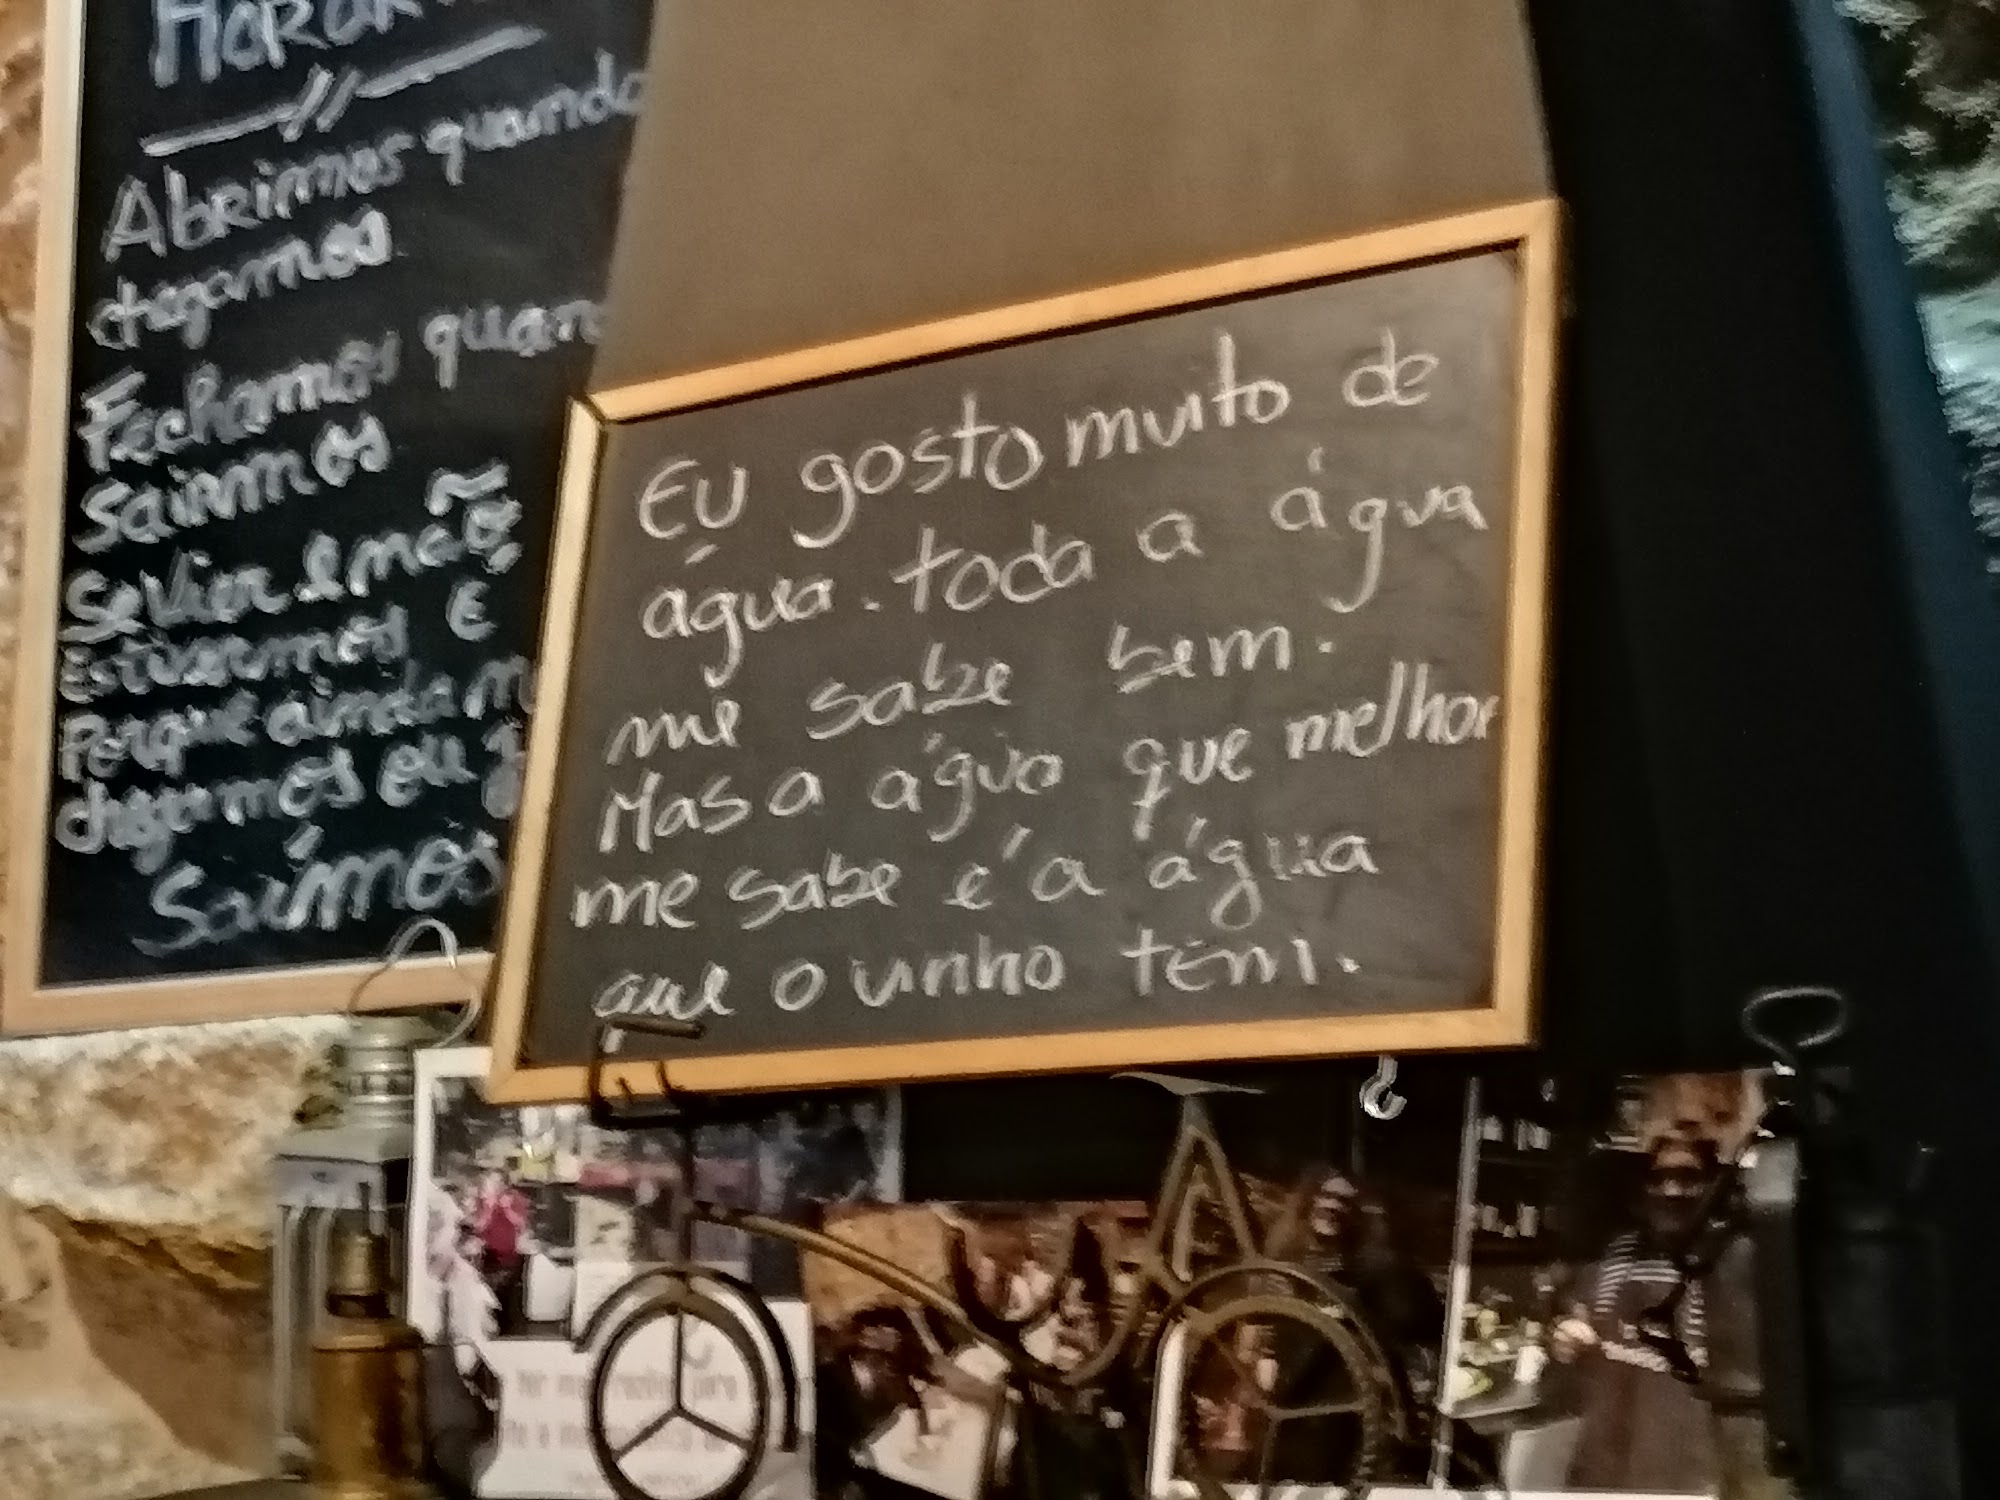 Abrimos
chegamos
Fechamos
Sairmos
Se vier e não
Estivermos E
Porque ainda
chegamos ou
Saímos
Eu gosto muito de
água. toda a água
me sabe bem.
Mas a água que melhor
me sabe é a água
que o vinho tem.